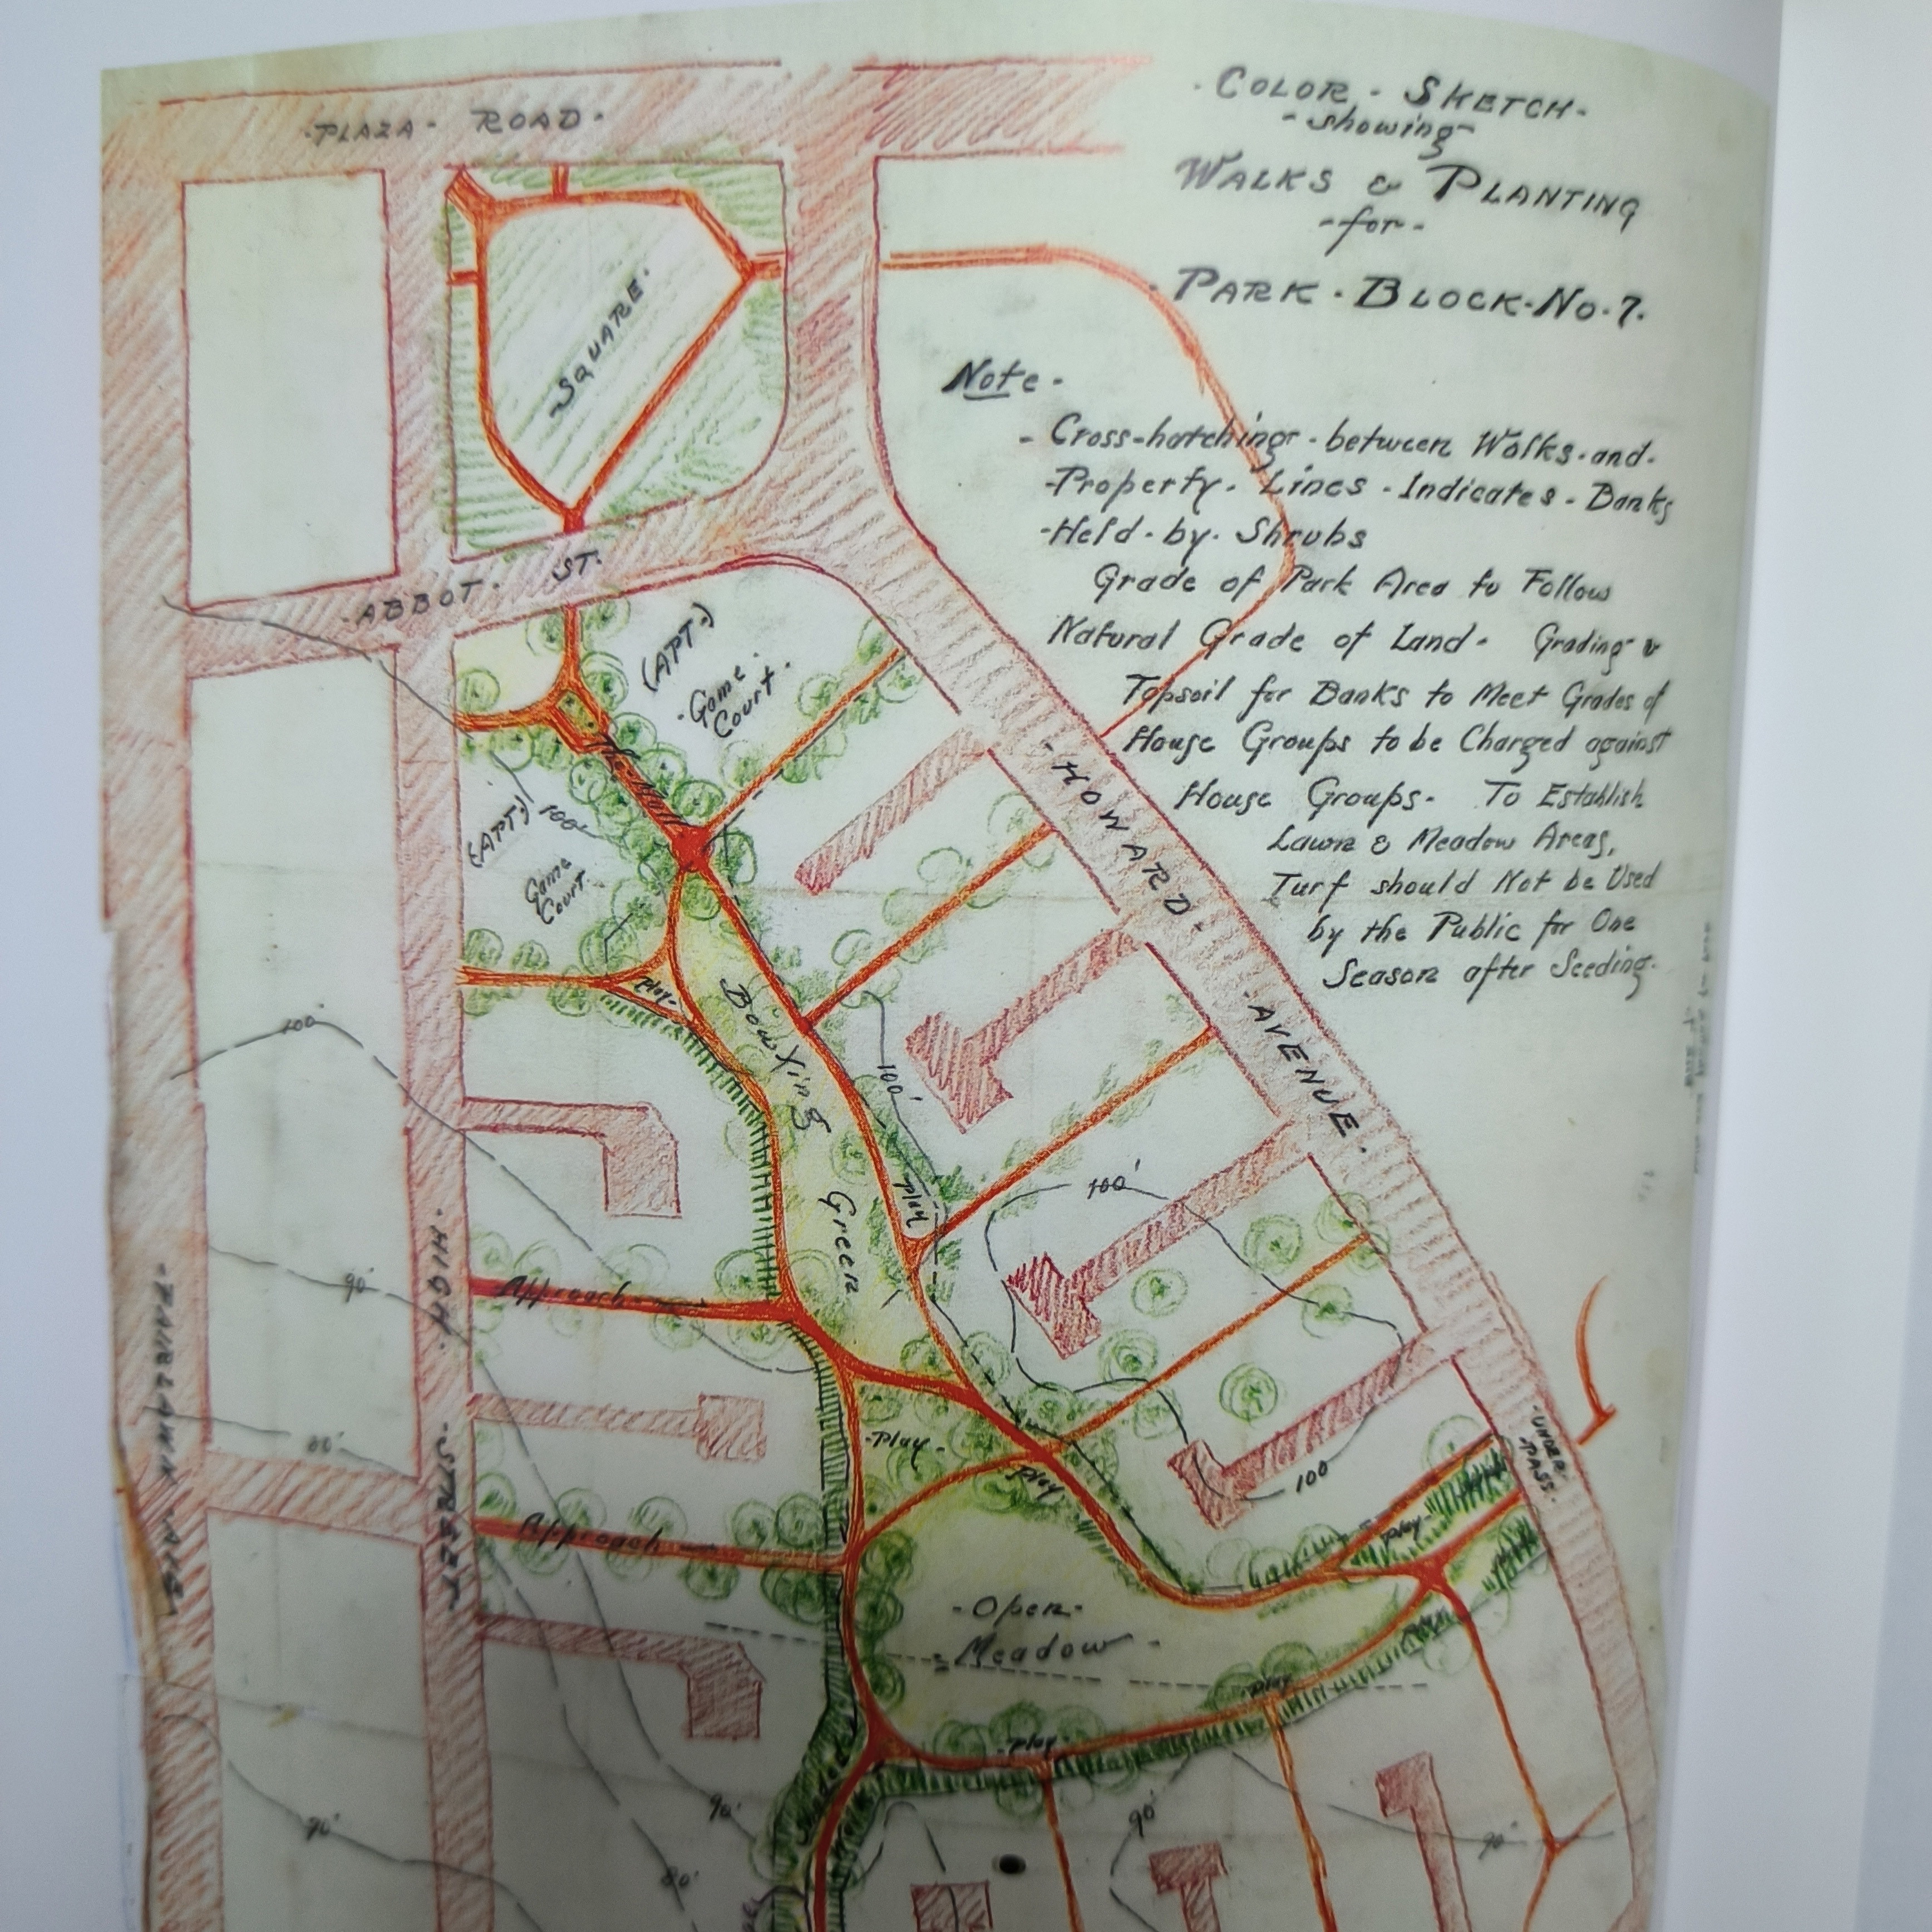 -PLAZA- ROAD-
· COLOR - SKETCH -
- showing -
WALKS & PLANTING
-for-
PARK · BLOCK · No · 7.
Note -
- Cross-hatching - between Walks · and ·
-Property - Lines - Indicates - Banks
-Held - by - Shrubs
Grade of Park Area to Follow
Natural Grade of Land - Grading &
Topsoil for Banks to Meet Grades of
House Groups to be Charged against
House Groups - To Establish
Lawn & Meadow Areas,
Turf should Not be Used
by the Public for One
Season after Seeding.
-SQUARE-
-ABBOT- ST.
(APT.)
-Game-
Court.
The Mall
(APT.)
100'
Game
Court.
-HOWARD-
-AVENUE.
Play-
Bowling
Green
100'
play
100'
100'
90'
80'
Approach
-HIGH-
-STREET-
-Play-
play
100
-UNDER
PASS-
Approach
play-
-Open-
-Meadow-
play
-play-
70'
90'
80'
90'
90'